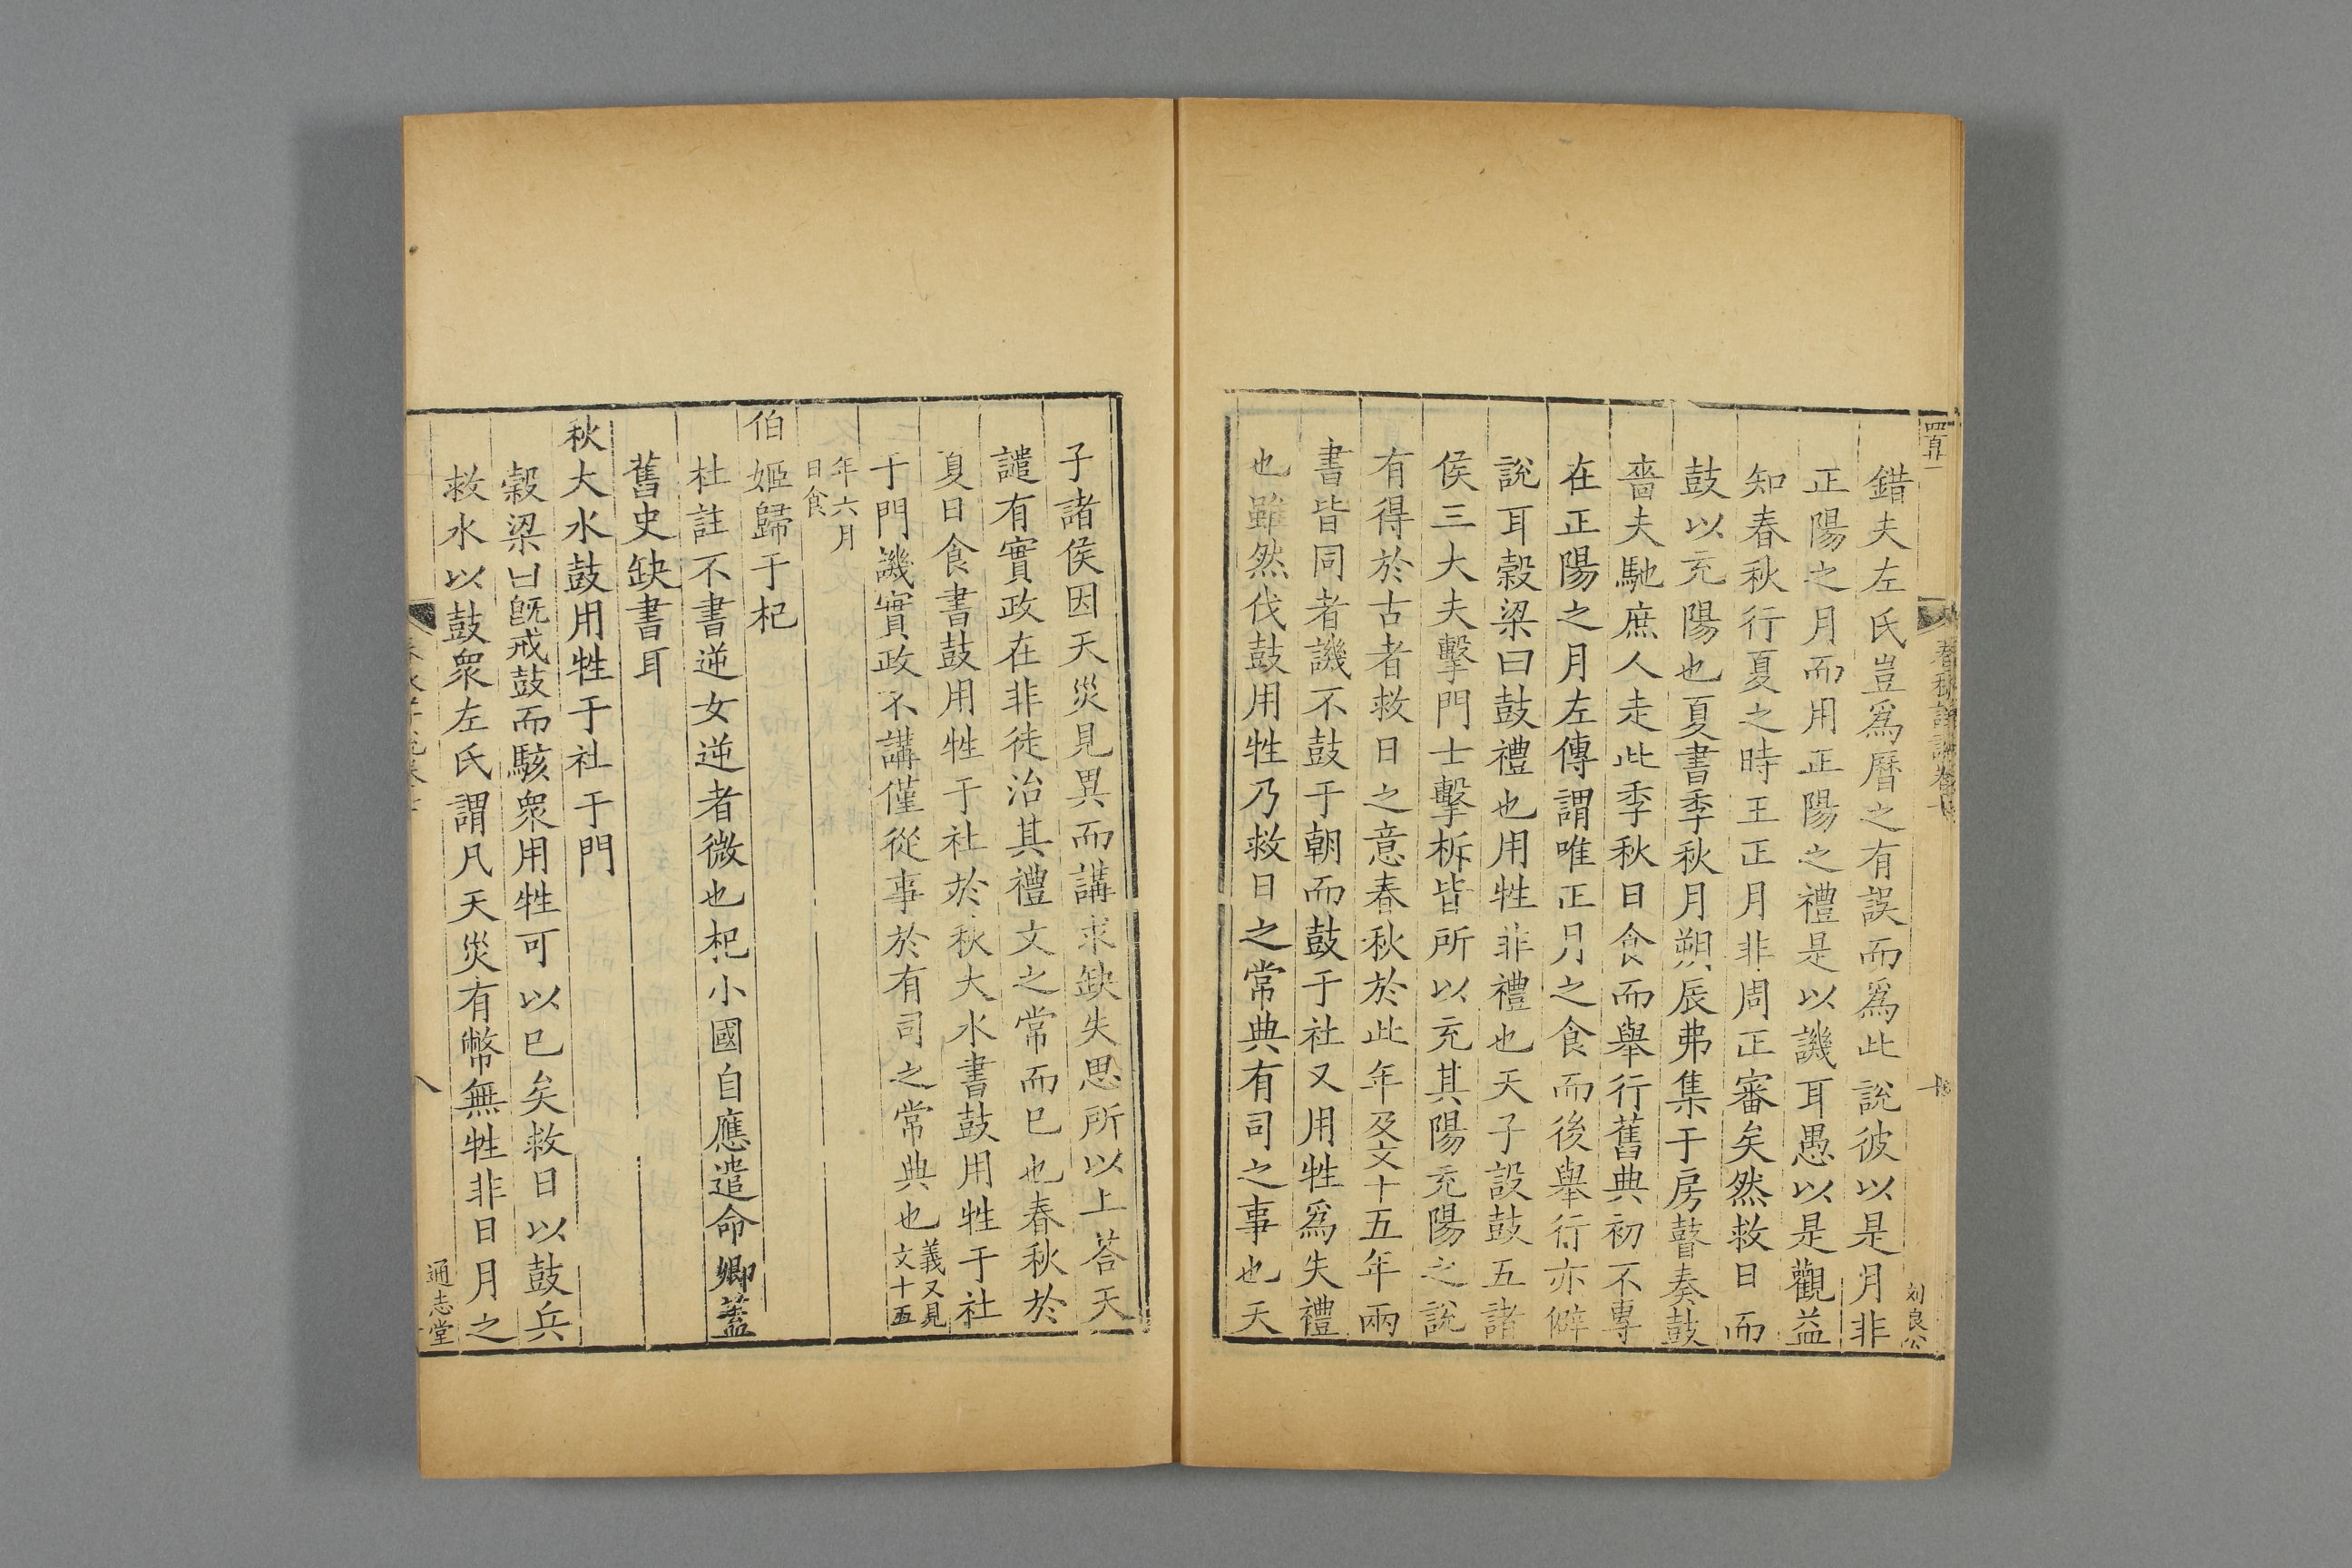 錯夫左氏豈爲曆之有誤而爲此說彼以是月非
正陽之月而用正陽之禮是以譏耳愚以是觀益
知春秋行夏之時王正月非周正審矣然救日而
鼓以充陽也夏書季秋月朔辰弗集于房瞽奏鼓
嗇夫馳庶人走此季秋日食而舉行舊典初不專
在正陽之月左傳謂唯正月之食而後舉行亦僻
說耳穀梁曰鼓禮也用牲非禮也天子設鼓五諸
侯三大夫擊門士擊柝皆所以充其陽充陽之說
有得於古者救日之意春秋於此年及文十五年兩
書皆同者譏不鼓于朝而鼓于社又用牲爲失禮
也雖然伐鼓用牲乃救日之常典有司之事也天
劉良公
子諸侯因天災見異而講求缺失思所以上荅天
譴有實政在非徒治其禮文之常而已也春秋於
夏日食書鼓用牲于社於秋大水書鼓用牲于社
于門譏實政不講僅從事於有司之常典也義又見文十五
年六月日食
伯姬歸于杞
杜註不書逆女逆者微也杞小國自應遣命卿蓋
舊史缺書耳
秋大水鼓用牲于社于門
穀梁曰既戒鼓而駭衆用牲可以已矣救日以鼓兵
救水以鼓衆左氏謂凡天災有幣無牲非日月之
八
通志堂